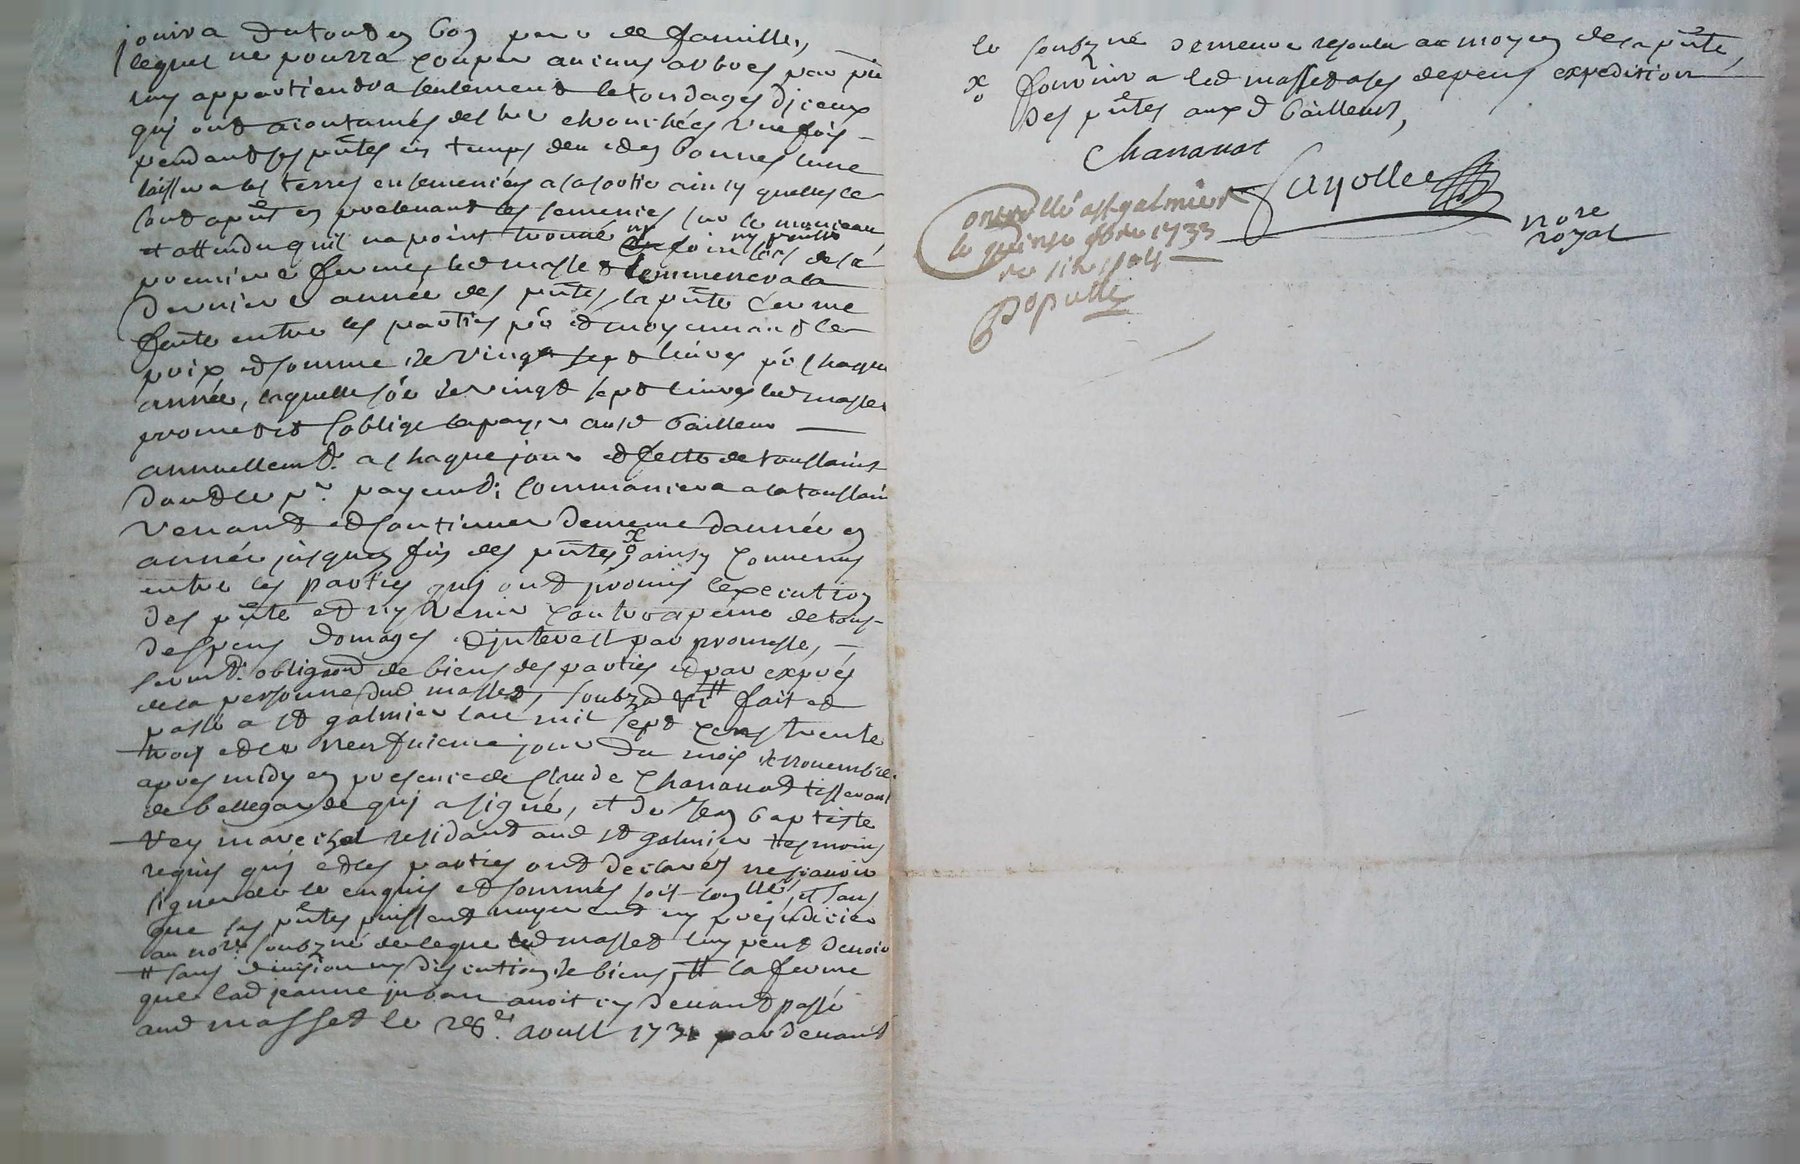 jouira du tout en bon pere de famille,
lequel ne pourra couper aucuns arbres par pied
luy appartiendra seulement le tondages d'iceux
qui ont acoutumés destre ebranchés une fois
pendant les pntes en temps deu et en bonnes lune
laissera les terres ensemencées a la sortie ainsy quelles le
sont apnt en prelevant les semences sur le monceau
et attendu quil na point trouvé ny foin ny paille de sa
premiere ferme, led masset commencera la
derniere année des pntes, la pnte ferme
faite entre les parties pr et moyennant le
prix et somme de vingt sept livres pr chaque
année, laquelle so'e de vingt sept livres led masset
promet et soblige la payer ausd bailleur
annuellemt. a chaque jour et feste de toussaint
dont le pr. payemt. commancera a la toussaint
venant et continuer de meme d'année en
année jusques fin des pntes, x/o ainsy convenus
entre les parties qui ont promis l'execution
des pnte et ny venir contre a peine de tous
despens domages et interest par promesse,
sermt. obligaon de biens des parties et par exprés
de la personne dud masset, soubzon # fait et
passé a st galmier lan mil sept cens trente
trois et le neufvieme jour du mois de novembre
apres midy en presence de Claude Chananat tisserant
de bellegarde qui a signé, et de Jean baptiste
Rey marechal residant aud st galmier tesmoins
requis qui et les parties ont declarés ne scavoir
signer de ce enquis et sommés soit conllé, et sans
que les pntes puissent nuyre ny prejudicier
au nore. soubzné de ce que led masset luy peut devoir
# sans division ny discution de biens, # la ferme
que lad jeanne avoit cy devant passé
aud masset le aoust 1731 par devant
le soubzné demeure resolue au moyen de la pnte,
x/o fournira led masset a ses depens expedition
des pntes auxd bailleurs,
Chananat
Fayolle
nore
royal
Controllé a st galmier
le quinse 9bre 1733